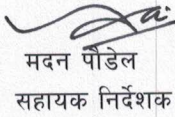 मदन पौडेल
सहायक निर्देशक